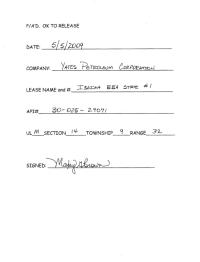 P/A'D. OK TO RELEASE
DATE: 5/5/2009
COMPANY: YATES PETROLEUM CORPORATION
LEASE NAME and # ISAIAH EEA STATE #1
API# 30-025-29071
UL M SECTION 14 TOWNSHIP 9 RANGE 32
SIGNED: